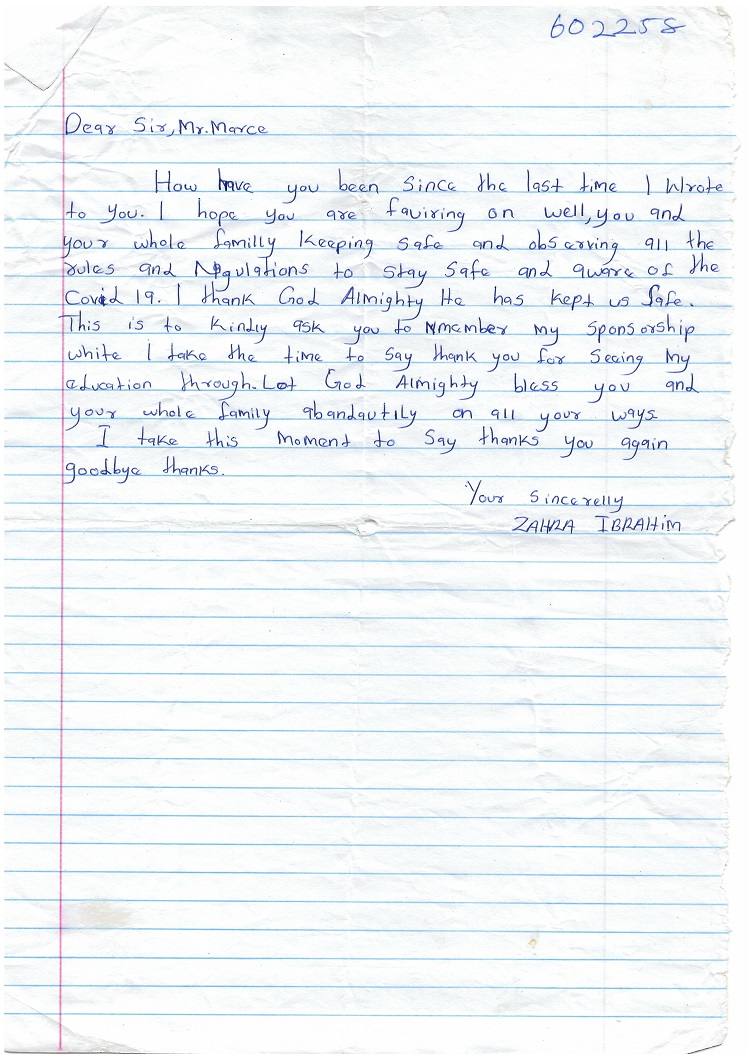 602258
Dear Sir, Mr. Marce
How have you been since the last time I wrote
to you. I hope you are faviring on well, you and
your whole familly keeping safe and observing all the
rules and Regulations to stay safe and aware of the
Covid 19. I thank God Almighty He has kept us safe.
This is to kindly ask you to remember my sponsorship
white I take the time to say thank you for seeing my
education through. Let God Almighty bless you and
your whole family abandautily on all your ways
I take this moment to say thanks you again
goodbye thanks.
Your Sincerelly
ZAHRA IBRAHim